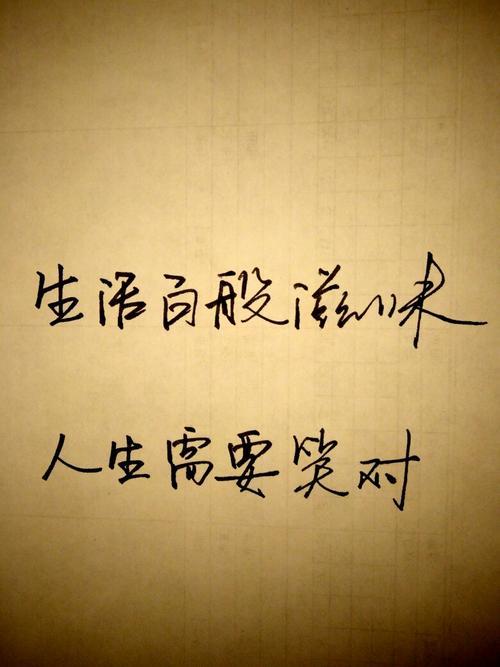 生活百般滋味
人生需要笑对